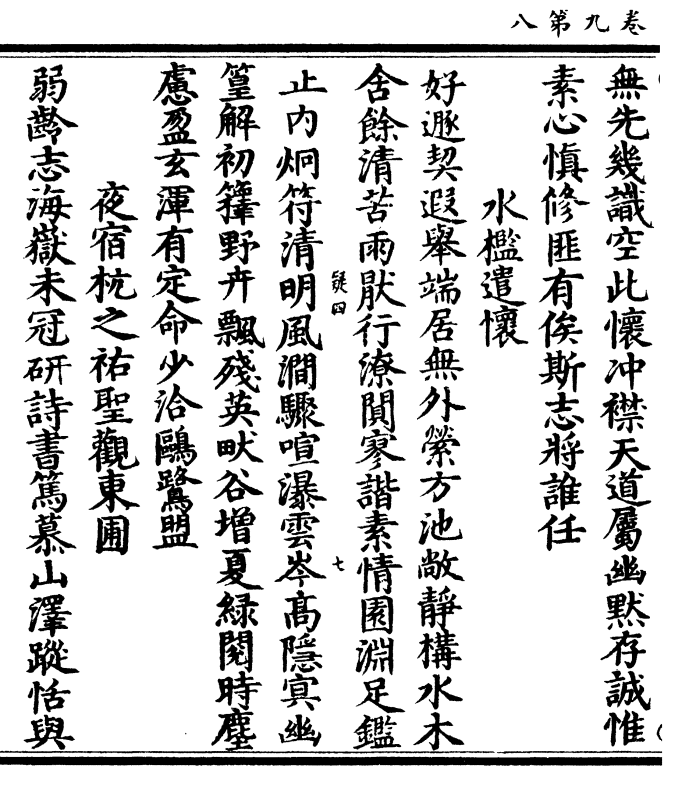 卷九第八
無先幾識空此懷冲襟天道屬幽默存誠惟
素心慎修匪有俟斯志將誰任
水檻遣懷
好遯契遐舉端居無外縈方池敞靜構水木
含餘清苦雨猒行潦闃寥諧素情園淵足鑑
止内炯符清明風澗驟喧瀑雲岑高隱冥幽
疑四
七
篁解初籜野卉飄殘英畎谷增夏綠閱時塵
慮盈玄渾有定命少洽鷗鷺盟
夜宿杭之祐聖觀東圃
弱齡志海嶽未冠研詩書篤慕山澤蹤恬與